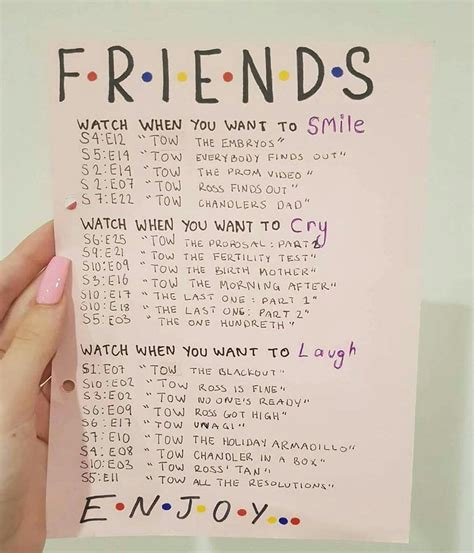 F.R.I.E.N.D.S
WATCH WHEN YOU WANT TO Smile
S4:E12 "TOW THE EMBRYOS"
S5:E14 "TOW EVERYBODY FINDS OUT"
S2:E14 "TOW THE PROM VIDEO"
S2:E07 "TOW ROSS FINDS OUT"
S7:E22 "TOW CHANDLERS DAD"
WATCH WHEN YOU WANT TO Cry
S6:E25 "TOW THE PROPOSAL: PART 2
S9:E21 "TOW THE FERTILITY TEST"
S10:E09 "TOW THE BIRTH MOTHER"
S3:E16 "TOW THE MORNING AFTER"
S10:E17 "THE LAST ONE: PART 1"
S10:E18 "THE LAST ONE: PART 2"
S5:E03 "THE ONE HUNDRETH"
WATCH WHEN YOU WANT TO Laugh
S1:E07 "TOW THE BLACKOUT"
S10:E02 "TOW ROSS IS FINE"
S3:E02 "TOW NO ONE'S READY"
S6:E09 "TOW ROSS GOT HIGH"
S6:E17 "TOW UNAGI"
S7:E10 "TOW THE HOLIDAY ARMADILLO"
S4:E08 "TOW CHANDLER IN A BOX"
S10:E03 "TOW ROSS' TAN"
S5:E11 "TOW ALL THE RESOLUTIONS"
E.N.J.O.Y...